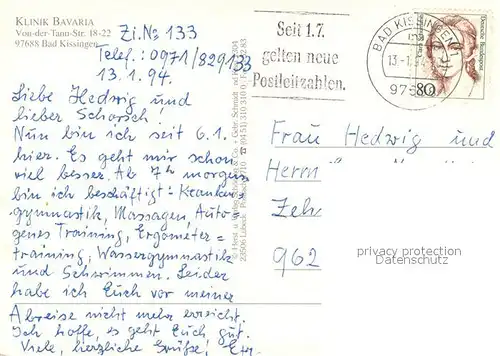 KLINIK BAVARIA
Von-der-Tann-Str. 18-22
97688 Bad Kissingen
Zi. No 133
Telef.: 0971/829133
13.1.94.
Liebe Hedwig und
lieber Schorsch!
Nun bin ich seit 6.1.
hier. Es geht mir schon
viel besser. Ab 7h morgens
bin ich beschäftigt: Kranken-
gymnastik, Massagen, Auto-
genes Training, Ergometer=
training, Wassergymnastik
und Schwimmen. Leider
habe ich Euch vor meiner
Abreise nicht mehr erreicht.
Ich hoffe, es geht Euch gut.
Viele, herzliche Grüße!
Seit 1.7.
gelten neue
Postleitzahlen.
BAD KISSINGEN 1
13-1.94
975
Deutsche Bundespost
80
Frau Hedwig und
Herrn
Zeh
962
privacy protection
Datenschutz